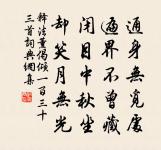 通身無覓處
遍界不曾藏
閉目中秋坐
却笑月無光
釋法薰偈傾一百三十
三首詞典網集